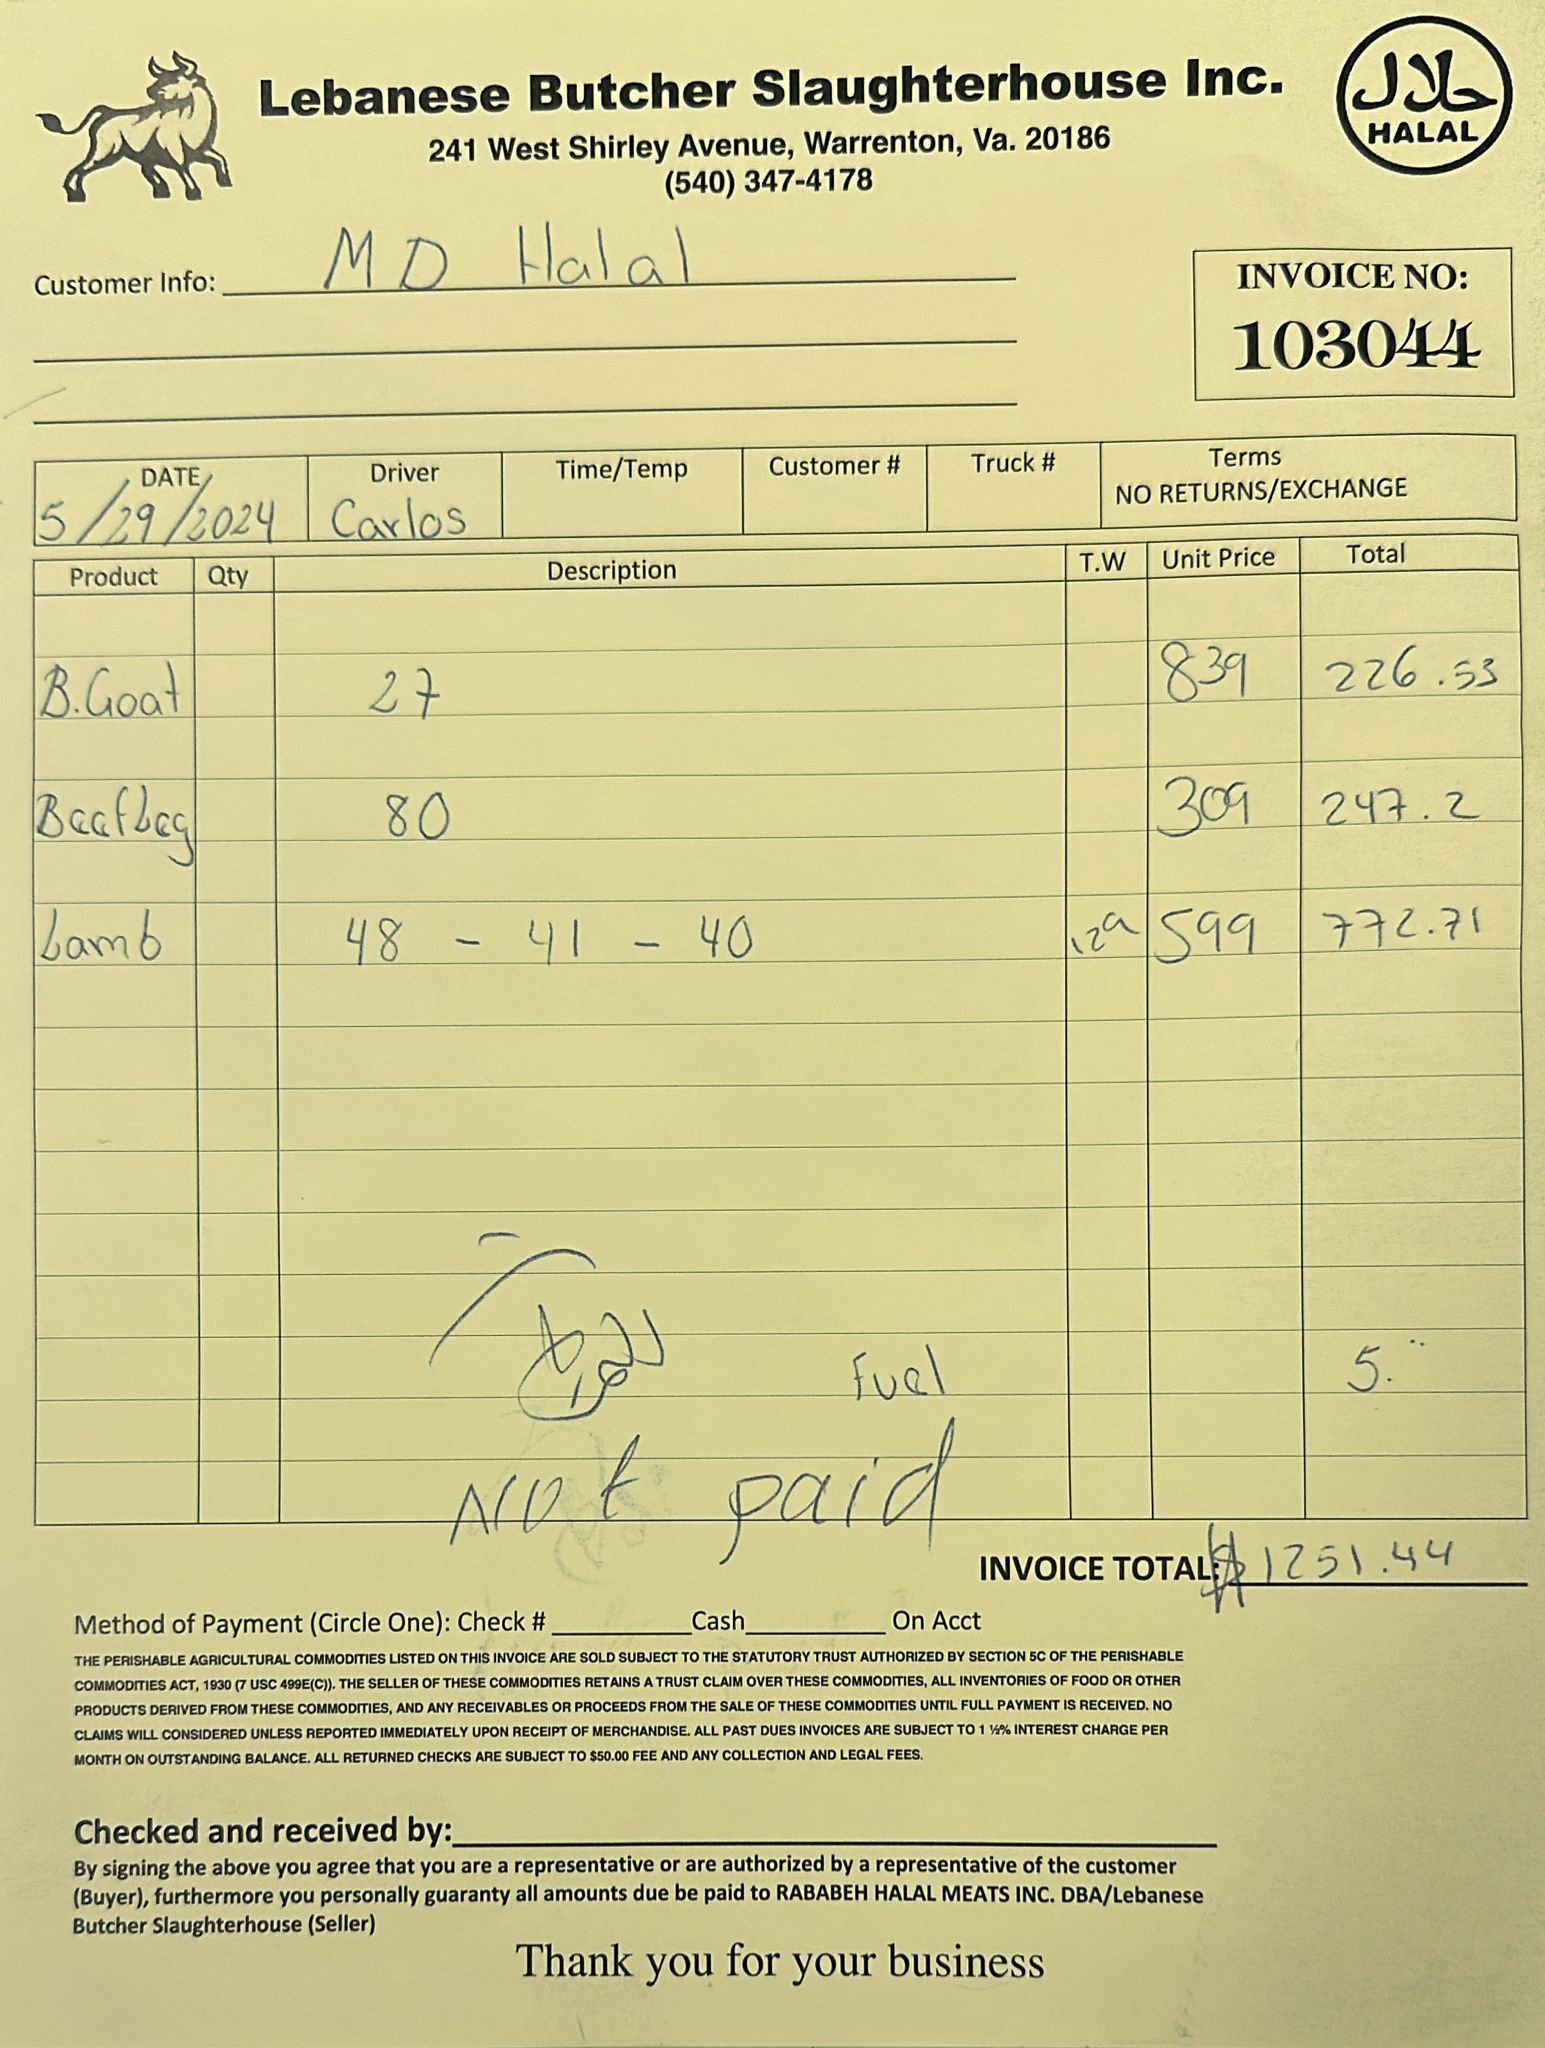 Lebanese Butcher Slaughterhouse Inc.
241 West Shirley Avenue, Warrenton, Va. 20186
(540) 347-4178
حلال
HALAL
Customer Info: MD Halal
INVOICE NO:
103044
DATE Driver Time/Temp Customer # Truck # Terms
NO RETURNS/EXCHANGE
5/29/2024 Carlos
Product Qty Description T.W Unit Price Total
B.Goat 27 839 226.53
Beef Leg 80 309 247.2
Lamb 48 - 41 - 40 129 599 772.71
Fuel 5.
Not paid
INVOICE TOTAL: $1251.44
Method of Payment (Circle One): Check # Cash On Acct
THE PERISHABLE AGRICULTURAL COMMODITIES LISTED ON THIS INVOICE ARE SOLD SUBJECT TO THE STATUTORY TRUST AUTHORIZED BY SECTION 5C OF THE PERISHABLE
COMMODITIES ACT, 1930 (7 USC 499E(C)). THE SELLER OF THESE COMMODITIES RETAINS A TRUST CLAIM OVER THESE COMMODITIES, ALL INVENTORIES OF FOOD OR OTHER
PRODUCTS DERIVED FROM THESE COMMODITIES, AND ANY RECEIVABLES OR PROCEEDS FROM THE SALE OF THESE COMMODITIES UNTIL FULL PAYMENT IS RECEIVED. NO
CLAIMS WILL CONSIDERED UNLESS REPORTED IMMEDIATELY UPON RECEIPT OF MERCHANDISE. ALL PAST DUES INVOICES ARE SUBJECT TO 1 ½% INTEREST CHARGE PER
MONTH ON OUTSTANDING BALANCE. ALL RETURNED CHECKS ARE SUBJECT TO $50.00 FEE AND ANY COLLECTION AND LEGAL FEES.
Checked and received by:
By signing the above you agree that you are a representative or are authorized by a representative of the customer
(Buyer), furthermore you personally guaranty all amounts due be paid to RABABEH HALAL MEATS INC. DBA/Lebanese
Butcher Slaughterhouse (Seller)
Thank you for your business